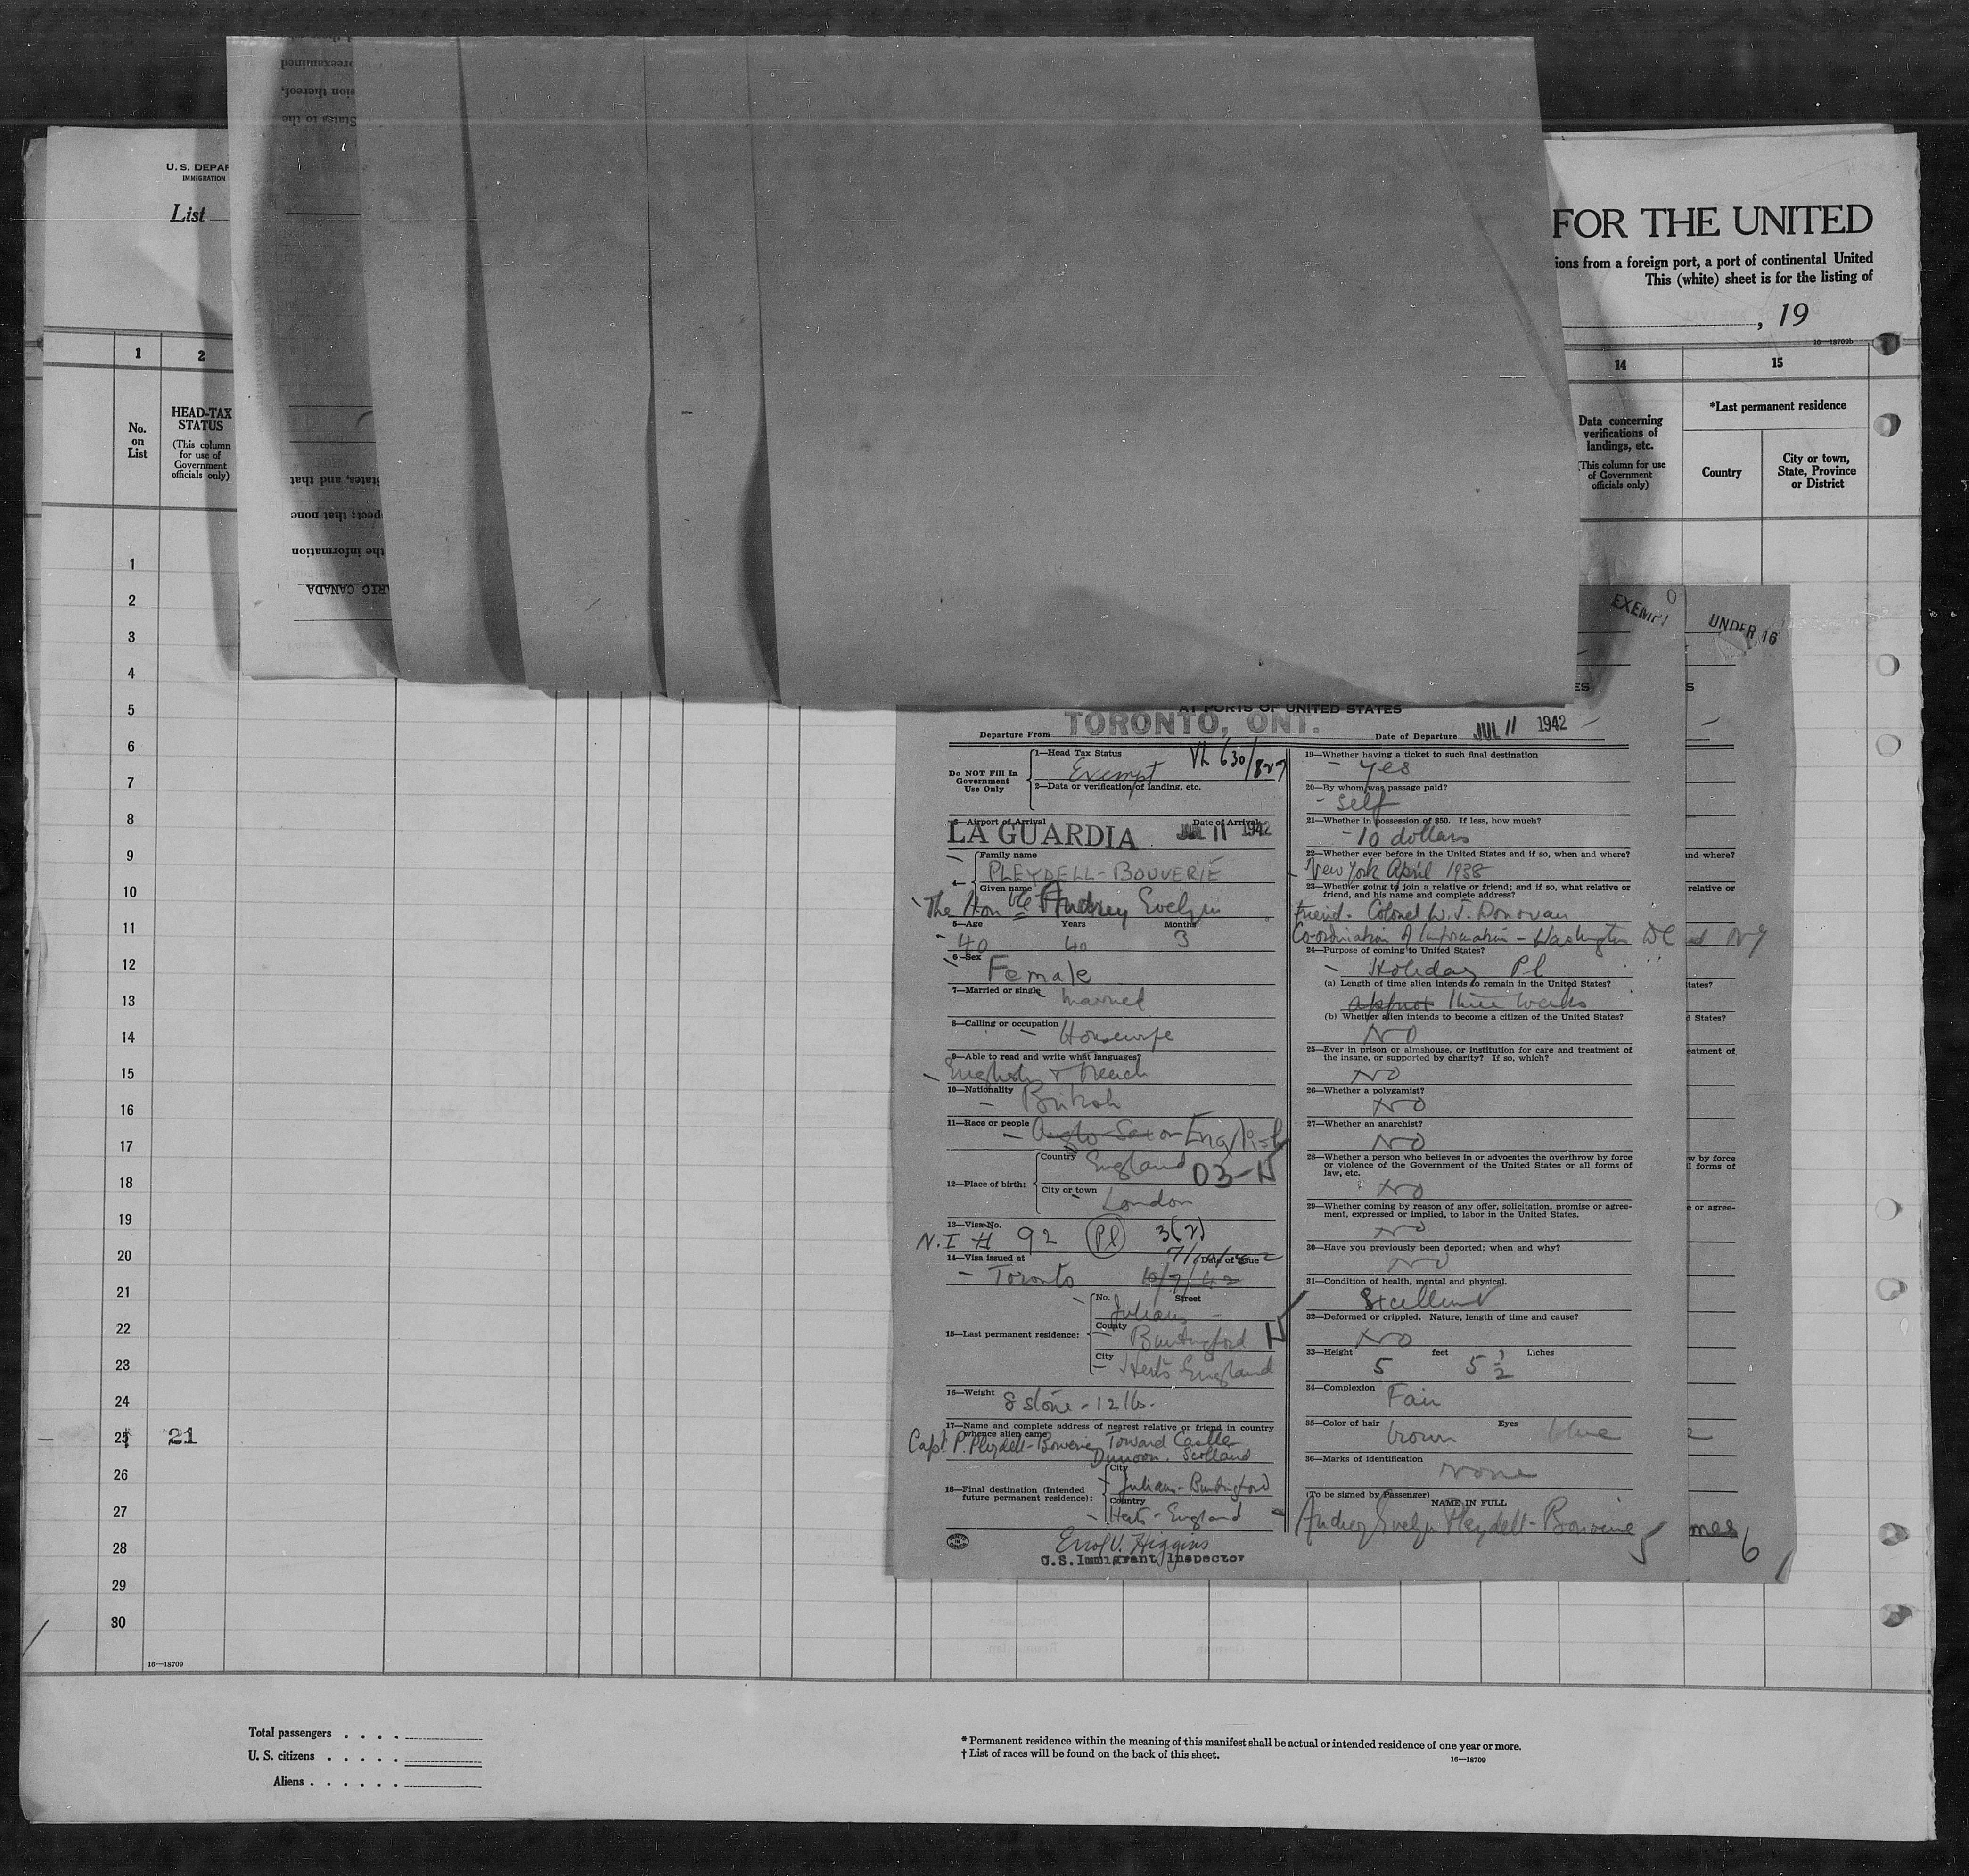 U. S. DEPAR
IMMIGRATION
List
preexamined
sion thereof,
States to the
States, and that
pect; that none
the information
ARIO CANADA
FOR THE UNITED
ions from a foreign port, a port of continental United
This (white) sheet is for the listing of
, 19
16—18709b
1
2
14
15
No.
on
List
HEAD-TAX
STATUS
(This column
for use of
Government
officials only)
Data concerning
verifications of
landings, etc.
(This column for use
of Government
officials only)
*Last permanent residence
Country
City or town,
State, Province
or District
1
2
3
4
5
6
7
8
9
10
11
12
13
14
15
16
17
18
19
20
21
22
23
24
25 21
26
27
28
29
30
16—18709
EXEMPT
UNDER 16
AT PORTS OF UNITED STATES
Departure From TORONTO, ONT. Date of Departure JUL 11 1942
Do NOT Fill In
Government
Use Only
1—Head Tax Status VL 630/827
Exempt
2—Data or verification of landing, etc.
3—Airport of Arrival Date of Arrival
LA GUARDIA JUL 11 1942
4—
Family name
PLEYDELL-BOUVERIE
Given name
The Honble Audrey Evelyn
5—Age Years Months
40 40 3
6—Sex
Female
7—Married or single married
8—Calling or occupation Housewife
9—Able to read and write what languages?
English & French
10—Nationality
British
11—Race or people
Anglo-Saxon English
12—Place of birth:
Country England 03-H
City or town
London
13—Visa No.
N.I # 92 Pl 3(2)
14—Visa issued at Date of issue
Toronto 10/7/42
15—Last permanent residence:
No. Street
Julians
County
Buntingford
City
Herts England
16—Weight
8 stone - 12 lbs.
17—Name and complete address of nearest relative or friend in country
whence alien came
Capt. P. Pleydell-Bouverie, Toward Castle
Dunoon. Scotland
18—Final destination (Intended
future permanent residence):
City
Julians - Buntingford
Country
Herts - England
Errol V. Higgins
U.S. Immigrant Inspector
19—Whether having a ticket to such final destination
yes
20—By whom was passage paid?
self
21—Whether in possession of $50. If less, how much?
10 dollars
22—Whether ever before in the United States and if so, when and where?
New York April 1938
23—Whether going to join a relative or friend; and if so, what relative or
friend, and his name and complete address?
friend. Colonel W. J. Donovan
Co-ordination of Information - Washington DC
24—Purpose of coming to United States?
Holiday Pl
(a) Length of time alien intends to remain in the United States?
approx three weeks
(b) Whether alien intends to become a citizen of the United States?
NO
25—Ever in prison or almshouse, or institution for care and treatment of
the insane, or supported by charity? If so, which?
NO
26—Whether a polygamist?
NO
27—Whether an anarchist?
NO
28—Whether a person who believes in or advocates the overthrow by force
or violence of the Government of the United States or all forms of
law, etc.
NO
29—Whether coming by reason of any offer, solicitation, promise or agree-
ment, expressed or implied, to labor in the United States.
NO
30—Have you previously been deported; when and why?
NO
31—Condition of health, mental and physical.
Excellent
32—Deformed or crippled. Nature, length of time and cause?
NO
33—Height feet Inches
5 5 1/2
34—Complexion Fair
35—Color of hair Eyes
brown blue
36—Marks of identification
None
(To be signed by Passenger)
NAME IN FULL
Audrey Evelyn Pleydell-Bouverie 5
and where?
relative or
NY
tates?
d States?
eatment of
w by force
l forms of
e or agree-
mes 6
Total passengers . . . .
U. S. citizens . . . . .
Aliens . . . . . .
* Permanent residence within the meaning of this manifest shall be actual or intended residence of one year or more.
† List of races will be found on the back of this sheet.
16—18709